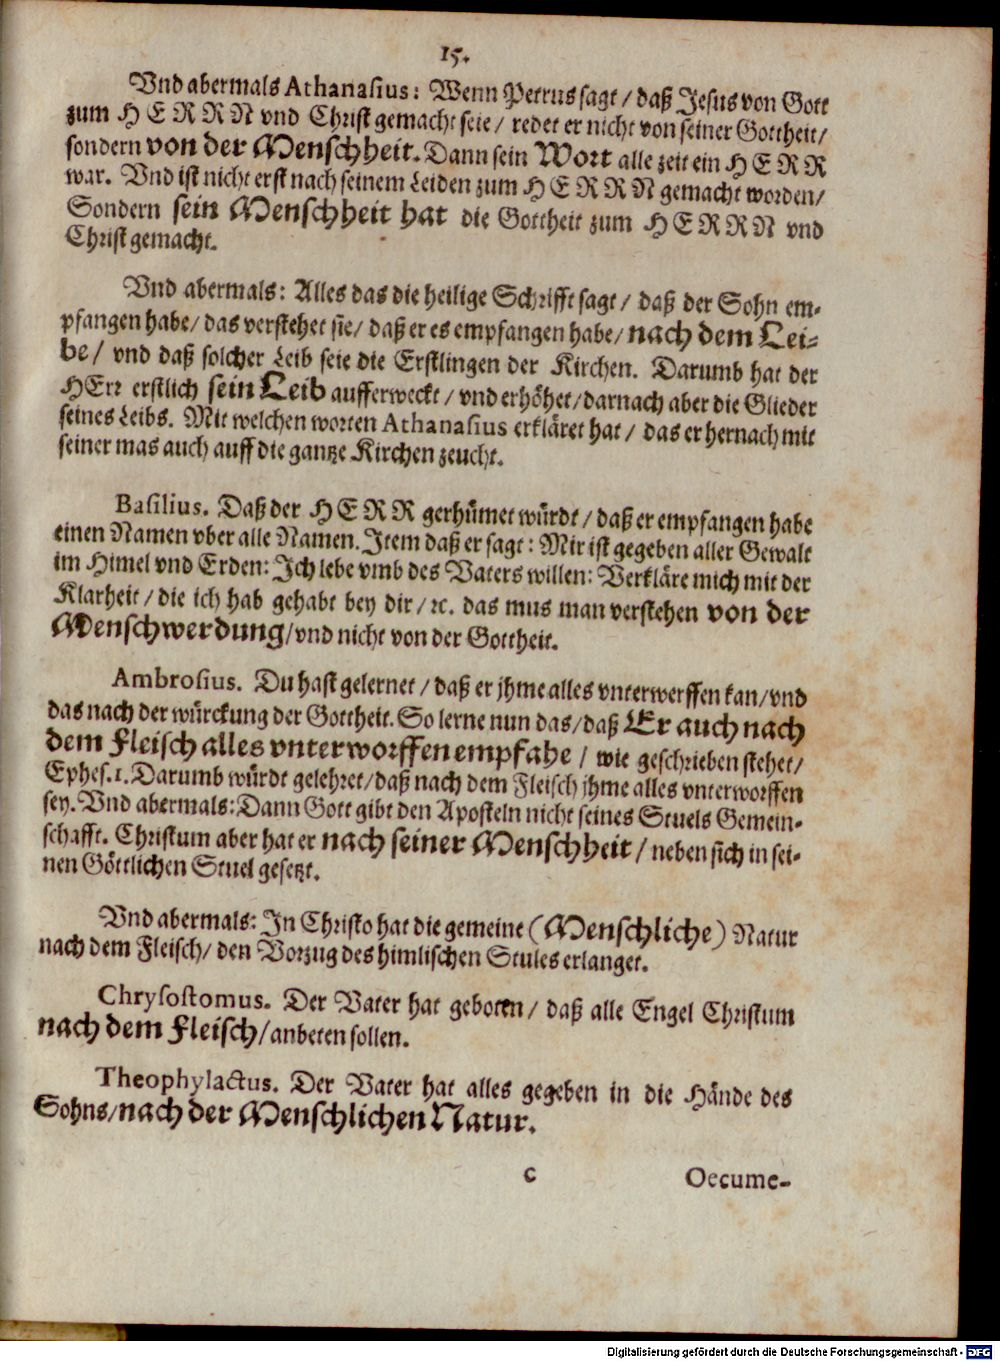 15.
Vnd abermals Athanasius: Wenn Petrus sagt / daß Jesus von Gott
zum HERRN vnd Christ gemacht seie / redet er nicht von seiner Gottheit /
sondern von der Menschheit. Dann sein Wort alle zeit ein HERR
war. Vnd ist nicht erst nach seinem Leiden zum HERRN gemacht worden /
Sondern sein Menschheit hat die Gottheit zum HERRN vnd
Christ gemacht.
Vnd abermals: Alles das die heilige Schrifft sagt / daß der Sohn em-
pfangen habe / das verstehet sie / daß er es empfangen habe / nach dem Lei-
be / vnd daß solcher Leib seie die Erstlingen der Kirchen. Darumb hat der
HErr erstlich sein Leib aufferweckt / vnd erhöhet / darnach aber die Glieder
seines Leibs. Mit welchen worten Athanasius erkläret hat / das er hernach mit
seiner mas auch auff die gantze Kirchen zeucht.
Basilius. Daß der HERR gerhümet würdt / daß er empfangen habe
einen Namen vber alle Namen. Item daß er sagt: Mir ist gegeben aller Gewalt
im Himel vnd Erden: Ich lebe vmb des Vaters willen: Verkläre mich mit der
Klarheit / die ich hab gehabt bey dir / ꝛc. das mus man verstehen von der
Menschwerdung / vnd nicht von der Gottheit.
Ambrosius. Du hast gelernet / daß er jhme alles vnterwerffen kan / vnd
das nach der würckung der Gottheit. So lerne nun das / daß Er auch nach
dem Fleisch alles vnterworffen empfahe / wie geschrieben stehet /
Ephes. 1. Darumb würdt gelehret / daß nach dem Fleisch jhme alles vnterworffen
sey. Vnd abermals: Dann Gott gibt den Aposteln nicht seines Stuels Gemein-
schafft. Christum aber hat er nach seiner Menschheit / neben sich in sei-
nen Göttlichen Stuel gesetzt.
Vnd abermals: In Christo hat die gemeine (Menschliche) Natur
nach dem Fleisch / den Vorzug des himlischen Stules erlanget.
Chrysostomus. Der Vater hat geboten / daß alle Engel Christum
nach dem Fleisch / anbeten sollen.
Theophylactus. Der Vater hat alles gegeben in die Hände des
Sohns / nach der Menschlichen Natur.
C
Oecume-
Digitalisierung gefördert durch die Deutsche Forschungsgemeinschaft - DFG